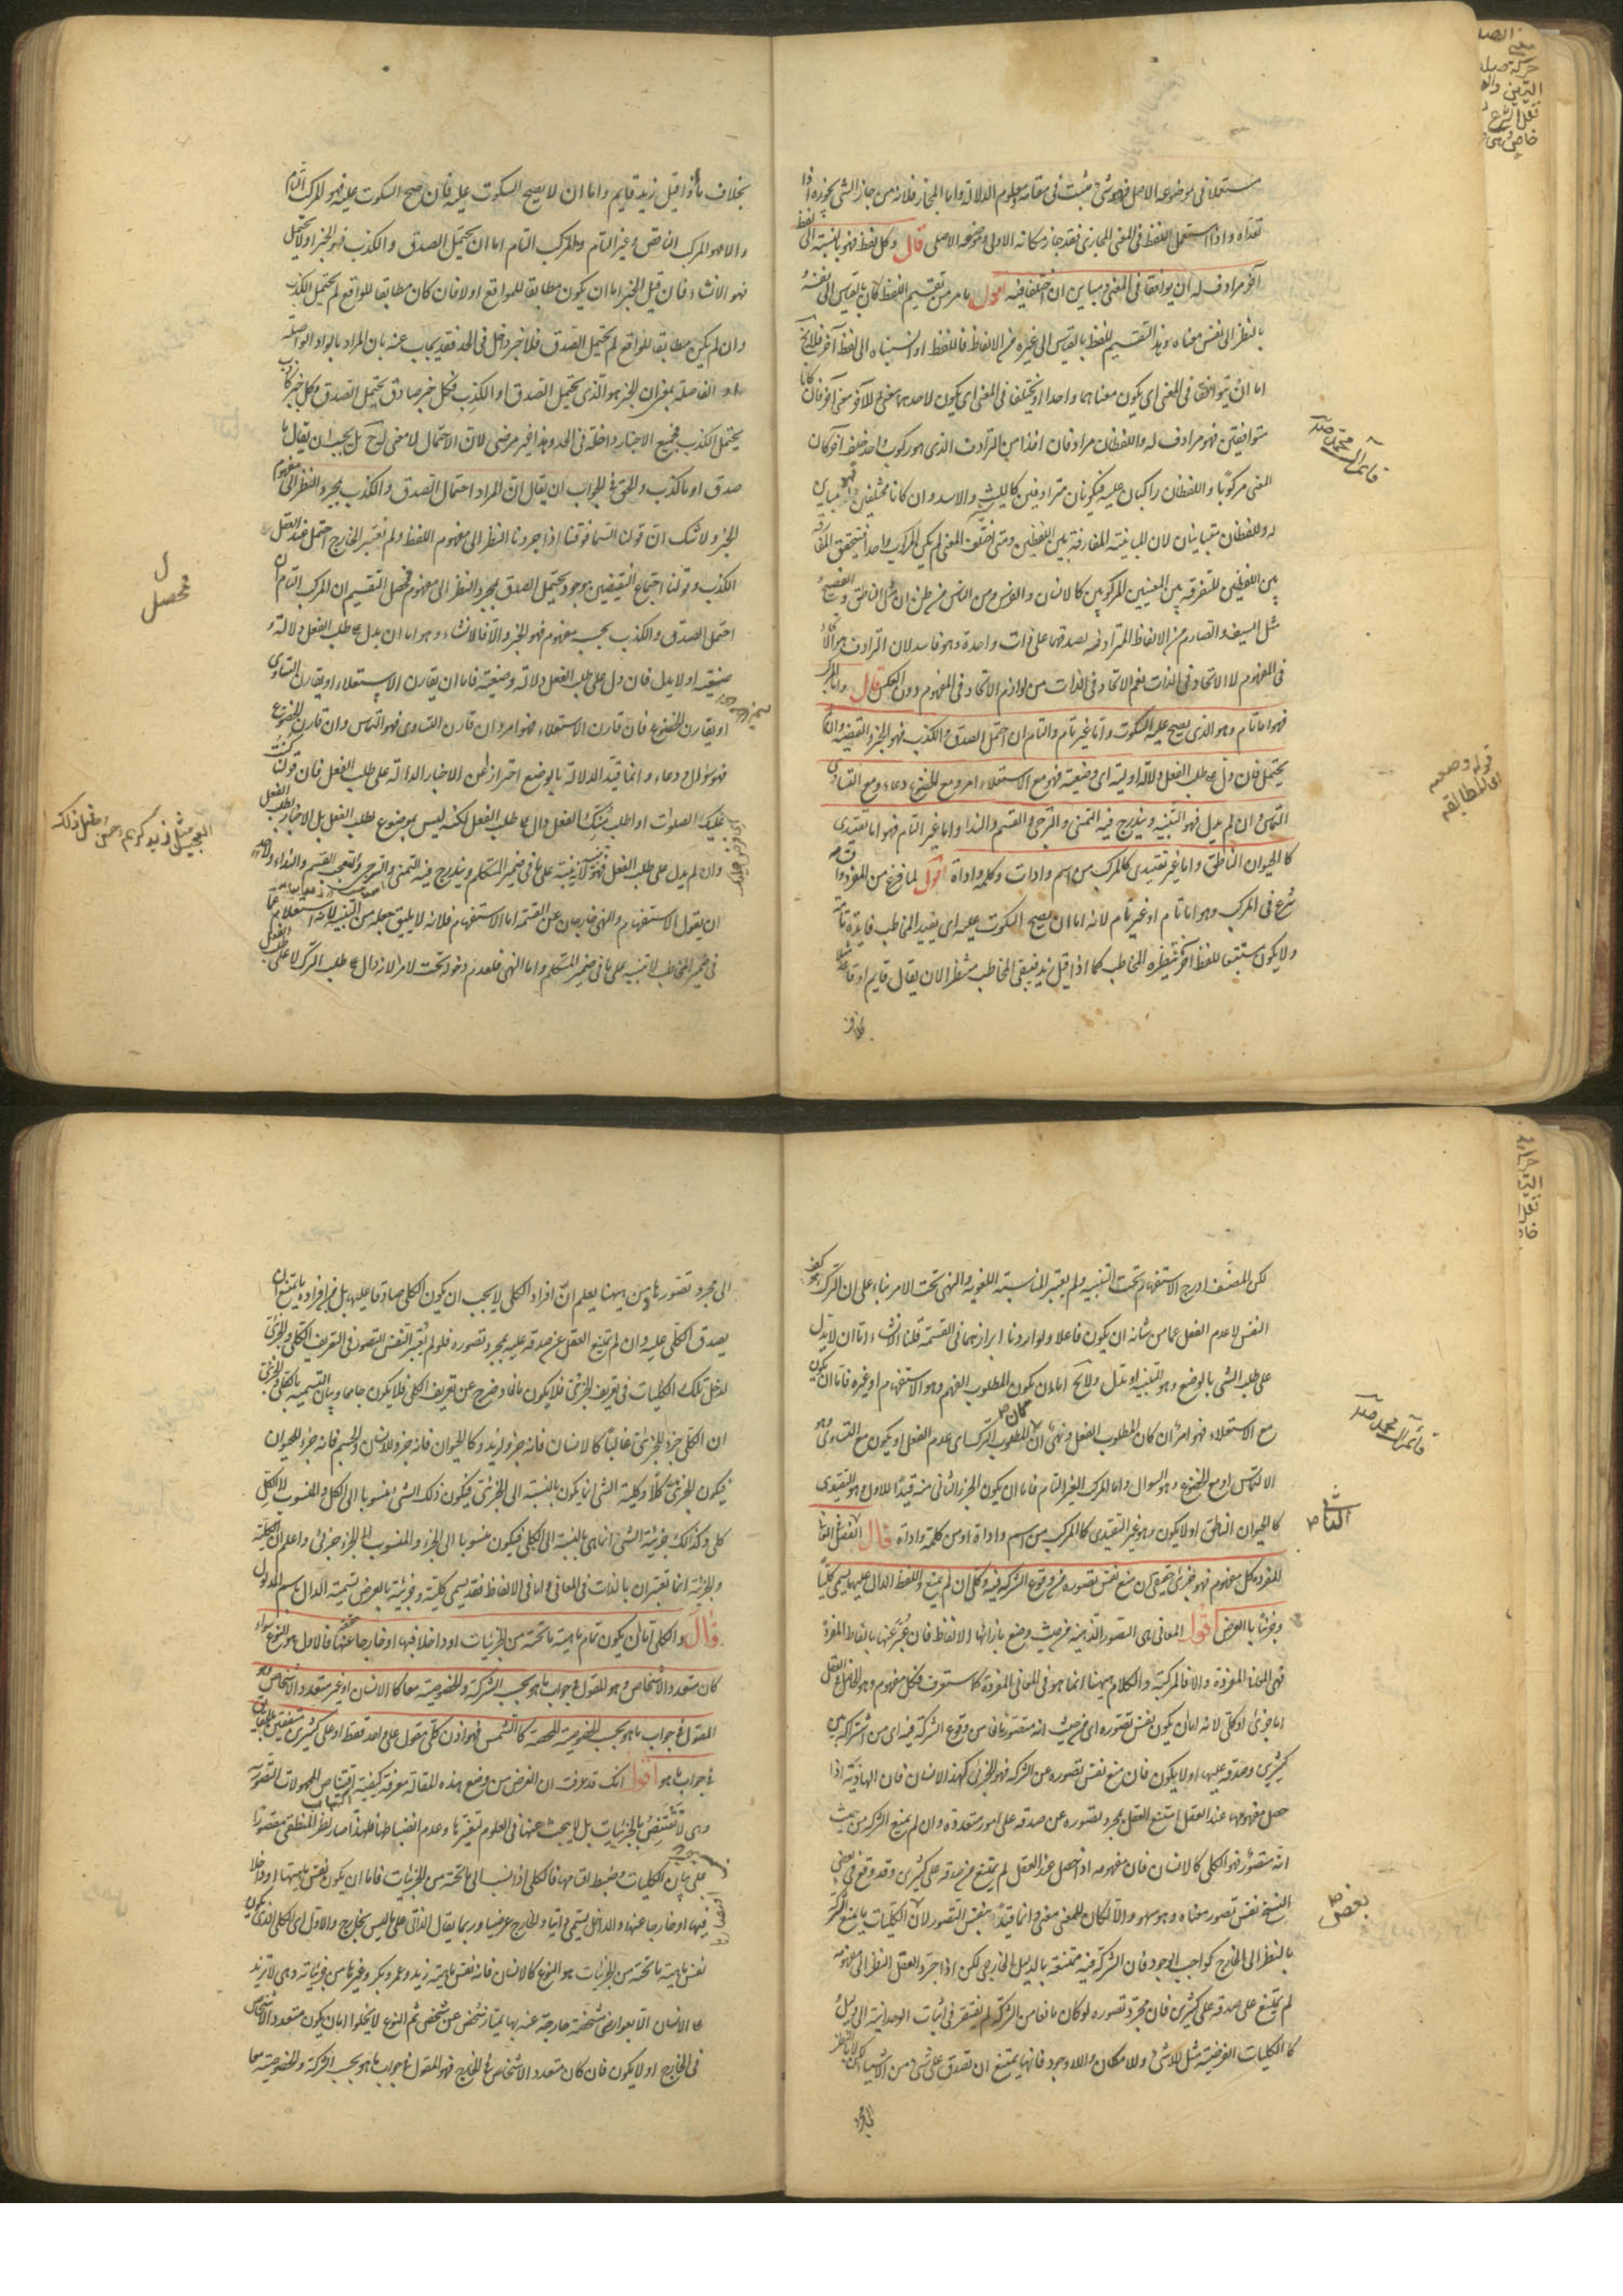 مستعملا فى موضوعه الاصلى فهو شئ مثبت فى مقامه معلوم الدلالة واما المجاز فلانه من جاز الشئ يجوزه اذا
تعداه واذا استعمل اللفظ فى المعنى المجازى فقد جاز مكانه الاول وموضعه الاصلى قال وكل لفظ فهو بالنسبة الى لفظ
آخر مرادف له ان توافقا فى المعنى ومباين ان اختلفا فيه اقول ما مر من تقسيم اللفظ كان بالقياس الى نفسه
بالنظر الى نفس معناه وهذا تقسيم للفظ بالقياس الى غيره من الالفاظ فاللفظ اذا نسبناه الى لفظ آخر فلا يخ
اما ان يتوافقا فى المعنى اى يكون معناهما واحدا او يختلفا فى المعنى اى يكون لاحدهما معنى وللآخر معنى آخر فان كانا
متوافقين فهو مرادف له واللفظان مرادفان اخذا من الترادف الذى هو ركوب واحد خلف آخر كان
المعنى مركوبا واللفظان راكبان عليه فيكونان مترادفين كالليث والاسد وان كانا مختلفين فهو مباين
له واللفظان متباينان لان المباينة المفارقة بين اللفظين ومتى اختلف المعنى لم يكن المركوب واحدا فيتحقق المفارقة
بين اللفظين للتفرقة بين المعنيين المركوبين كالانسان والفرس ومن الناس من ظن ان مثل الناطق والفصيح
مثل السيف والصارم من الالفاظ المترادفة لصدقهما على ذات واحدة وهو فاسد لان الترادف هو الاتحاد
فى المفهوم لا الاتحاد فى الذات نعم الاتحاد فى الذات من لوازم الاتحاد فى المفهوم دون العكس قال واما المركب
فهو اما تام وهو الذى يصح عليه السكوت واما غير تام والتام ان احتمل الصدق والكذب فهو الخبر والقضية وان لم
يحتمل فان دل على طلب الفعل دلالة اولية اى وضعية فهو مع الاستعلاء امر ومع الخضوع دعاء ومع التساوى
التماس وان لم يدل فهو التنبيه ويندرج فيه التمنى والترجى والقسم والنداء واما غير التام فهو اما تقييدى
كالحيوان الناطق واما غير تقييدى كالمركب من اسم وادات وكلمة واداة اقول لما فرغ من المفرد
شرع فى المركب وهو اما تام او غير تام لانه اما ان يصح السكوت عليه اى يفيد المخاطب فايدة تامة
ولا يكون مستتبعا للفظ آخر ينتظره المخاطب كما اذا قيل زيد فيبقى المخاطب منتظرا لان يقال قايم او قاعد مثلا
بخلاف
بخلاف ما اذا قيل زيد قايم واما ان لا يصح السكوت عليه فان صح السكوت عليه فهو المركب التام
والا فهو المركب الناقص وغير التام والمركب التام اما ان يحتمل الصدق والكذب فهو الخبر او لا يحتمل
فهو الانشاء فان قيل الخبر اما ان يكون مطابقا للواقع او لا فان كان مطابقا للواقع لم يحتمل الكذب
وان لم يكن مطابقا للواقع لم يحتمل الصدق فلا خبر داخل فى الحد فقد يجاب عنه بان المراد بالواو الواصلة
او الفاصلة بمعنى ان الخبر هو الذى يحتمل الصدق او الكذب فكل خبر صادق يحتمل الصدق وكل خبر كاذب
يحتمل الكذب فجميع الاخبار داخلة فى الحد وهذا غير مرضى لان الاحتمال لا معنى له ح بل يجب ان يقال ما
صدق او ما كذب والحق فى الجواب ان يقال ان المراد احتمال الصدق والكذب بمجرد النظر الى مفهوم
الخبر ولا شك ان قولنا السماء فوقنا اذا جردنا النظر الى مفهوم اللفظ ولم نعتبر الخارج احتمل عند العقل
الكذب وقولنا اجتماع النقيضين موجود يحتمل الصدق بمجرد النظر الى مفهومه فحصل التقسيم ان المركب التام ان
احتمل الصدق والكذب بحسب مفهومه فهو الخبر والا فالانشاء وهو اما ان يدل على طلب الفعل دلالة
وضعية او لا يدل فان دل على طلب الفعل دلالة وضعية فاما ان يقارن الاستعلاء او يقارن التساوى
او يقارن الخضوع فان قارن الاستعلاء فهو امر وان قارن التساوى فهو التماس وان قارن الخضوع
فهو سؤال ودعاء وانما قيد الدلالة بالوضع احترازا عن الاخبار الدالة على طلب الفعل فان قولنا كتبت
عليك الصلوات او اطلب منك الفعل دال على طلب الفعل لكنه ليس بموضوع لطلب الفعل بل للاخبار بطلب الفعل
وان لم يدل على طلب الفعل فهو تنبيه لانه نبه على ما فى ضمير المتكلم ويندرج فيه التمنى والترجى والتعجب والقسم والنداء
ان يقول الاستفهام والنهى خارجان عن القسمة اما الاستفهام فلانه لا يليق جعله من التنبيه لانه استعلام ما
فى ضمير المخاطب لا تنبيه على ما فى ضمير المتكلم واما النهى فلعدم دخوله تحت الامر لانه دال على طلب الترك لا على طلب الفعل
محصل
لكن المصنف ادرج الاستفهام تحت التنبيه ولم يعتبر المناسبة اللغوية والنهى تحت الامر بناء على ان الترك هو كف
النفس لا عدم الفعل عما من شانه ان يكون فاعلا ولو اردنا ايرادهما فى القسمة قلنا الانشاء اما ان لا يدل
على طلب الشئ بالوضع وهو التنبيه او يدل ولا يخ اما ان يكون المطلوب الفهم وهو الاستفهام او غيره فاما ان يكون
مع الاستعلاء فهو امر ان كان المطلوب الفعل ونهى ان كان المطلوب الترك اى عدم الفعل او يكون مع التساوى وهو
الالتماس او مع الخضوع وهو السوال واما المركب الغير التام فاما ان يكون الجزء الثانى منه قيدا للاول وهو التقييدى
كالحيوان الناطق او لا يكون وهو غير التقييدى كالمركب من اسم واداة او من كلمة واداة قال الفصل الثانى
المفردة كل مفهوم فهو جزئى حقيقى ان منع نفس تصوره من وقوع الشركة فيه وكلى ان لم يمنع واللفظ الدال عليهما يسمى كليا
وجزئيا بالعرض اقول المعانى هى الصور الذهنية من حيث وضع بازائها الالفاظ فان عبر عنها بالفاظ المفردة
فهى المعانى المفردة والا فالمركبة والكلام ههنا انما هو فى المعانى المفردة كما ستعرف فكل مفهوم وهو الحاصل فى العقل
اما جزئى او كلى لانه اما ان يكون نفس تصوره اى من حيث انه متصور مانعا من وقوع الشركة فيه اى من اشتراكه بين
كثيرين وصدقه عليها او لا يكون فان منع نفس تصوره عن الشركة فهو الجزئى كهذا الانسان فان الهاذية اذا
حصل مفهومها عند العقل امتنع العقل بمجرد تصوره عن صدقه على امور متعددة وان لم يمنع الشركة من حيث
انه متصور فهو الكلى كالانسان فان مفهومه اذا حصل عند العقل لم يمتنع من صدقه على كثيرين وقد وقع فى بعض
النسخ نفس تصور معناه وهو سهو والا لكان للمعنى معنى وانما قيد بنفس التصور لان من الكليات ما يمنع الشركة
بالنظر الى الخارج كواجب الوجود فان الشركة فيه ممتنعة بالدليل الخارجى لكن اذا جرد العقل النظر الى مفهومه
لم يمتنع على صدقه على كثيرين فان مجرد تصوره لو كان مانعا من الشركة لم يفتقر فى اثبات الوحدانية الى دليل
كالكليات الفرضية مثل اللاشئ واللاامكان واللاوجود فانها يمتنع ان تصدق على شئ من الاشياء لكن لا بالنظر
الى مجرد
الى مجرد تصورها ومن ههنا يعلم ان افراد الكلى لا يجب ان يكون الكلى صادقا عليها بل من افراده ما يمتنع ان
يصدق الكلى عليه وان لم يمتنع العقل عن صدقه عليه بمجرد تصوره فلو لم يعتبر نفس التصور فى التعريف الكلى والجزئى
لدخل تلك الكليات فى تعريف الجزئى فلا يكون مانعا وخرج عن تعريف الكلى فلا يكون جامعا وبيان التسمية بالكلى والجزئى
ان الكلى جزء الجزئى غالبا كالانسان فانه جزء لزيد وكالحيوان فانه جزء للانسان والجسم فانه جزء للحيوان
فيكون الجزئى كلا وكلية الشئ انما يكون بالنسبة الى الجزئى فيكون ذلك الشئ منسوبا الى الكل والمنسوب الى الكل
كلى وكذلك جزئية الشئ انما هى بالنسبة الى الكلى فيكون منسوبا الى الجزء والمنسوب الى الجزء جزئى واعلم ان الكلية
والجزئية انما تعتبران بالذات فى المعانى واما فى الالفاظ فقد يسمى كلية وجزئية بالعرض تسمية الدال باسم المدلول
قال والكلى اما ان يكون تمام ماهية ما تحته من الجزئيات او داخلا فيها او خارجا عنها فالاول هو النوع سواء
كان متعدد الاشخاص وهو المقول فى جواب ما هو بحسب الشركة والخصوصية معا كالانسان او غير متعدد الاشخاص وهو
المقول فى جواب ما هو بحسب الخصوصية المحضة كالشمس فهو اذن كلى مقول على واحد فقط او على كثيرين متفقين بالحقايق
فى جواب ما هو اقول انك قد عرفت ان الغرض من وضع هذه المقالة معرفة كيفية اقتناص المجهولات التصورية
وهى لا تقتنص بالجزئيات بل لا يبحث عنها فى العلوم لتغيرها وعدم انضباطها فلهذا صار نظر المنطقى مقصورا
على بيان الكليات وضبط اقسامها فالكلى اذا نسب الى ما تحته من الجزئيات فاما ان يكون نفس ماهيتها او داخلا
فيها او خارجا عنها والداخل يسمى ذاتيا والخارج عرضيا وربما يقال الذاتى على ما ليس بخارج والاول اى الكلى الذى يكون
نفس ماهية ما تحته من الجزئيات هو النوع كالانسان فانه نفس ماهية زيد وعمرو وبكر وغيرها من جزئياته وهى لا تزيد
على الانسان الا بعوارض مشخصة خارجة عنه بها يمتاز شخص عن شخص ثم النوع لا يخلوا اما ان يكون متعدد الاشخاص
فى الخارج او لا يكون فان كان متعدد الاشخاص فى الخارج فهو المقول فى جواب ما هو بحسب الشركة والخصوصية معا